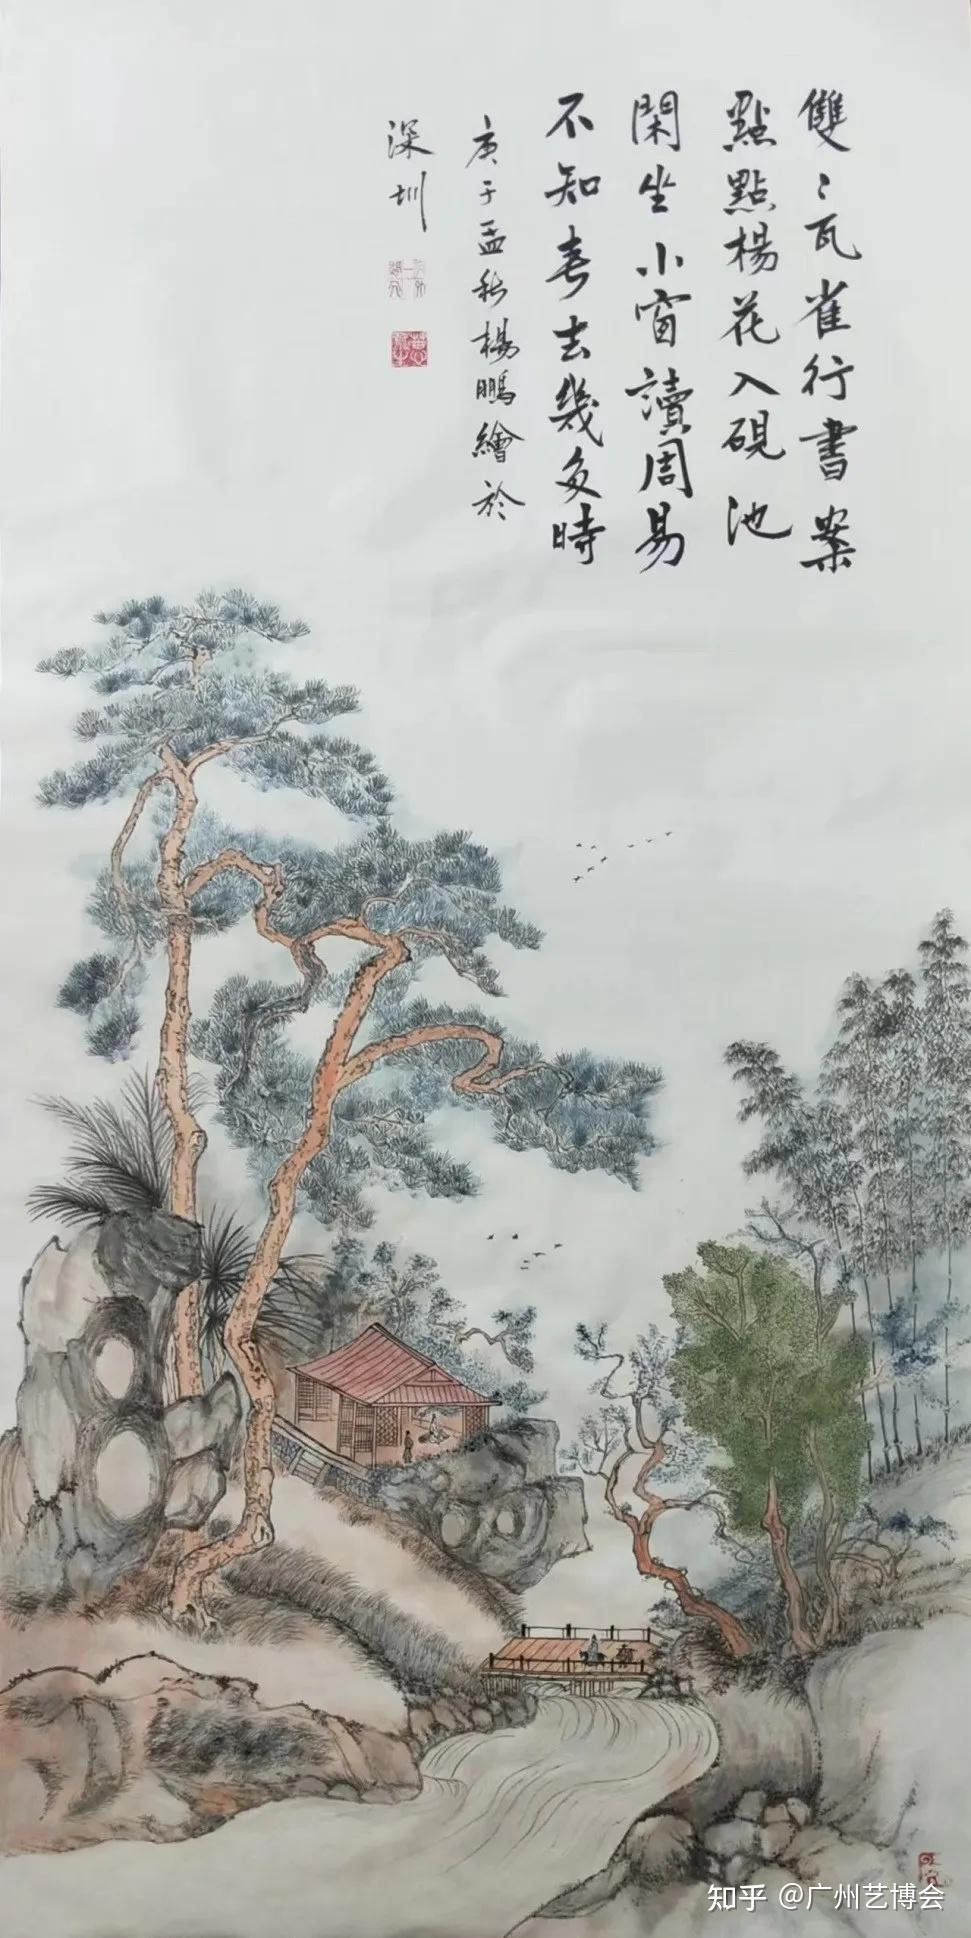 雙〻瓦雀行書案
點點楊花入硯池
閑坐小窗讀周易
不知春去幾多時
庚子孟秋楊鵬繪於
深圳
知乎 @广州艺博会